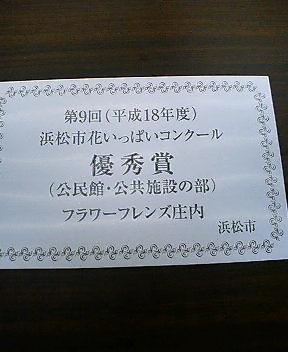 第9回(平成18年度)
浜松市花いっぱいコンクール
優秀賞
(公民館・公共施設の部)
フラワーフレンズ庄内
浜松市